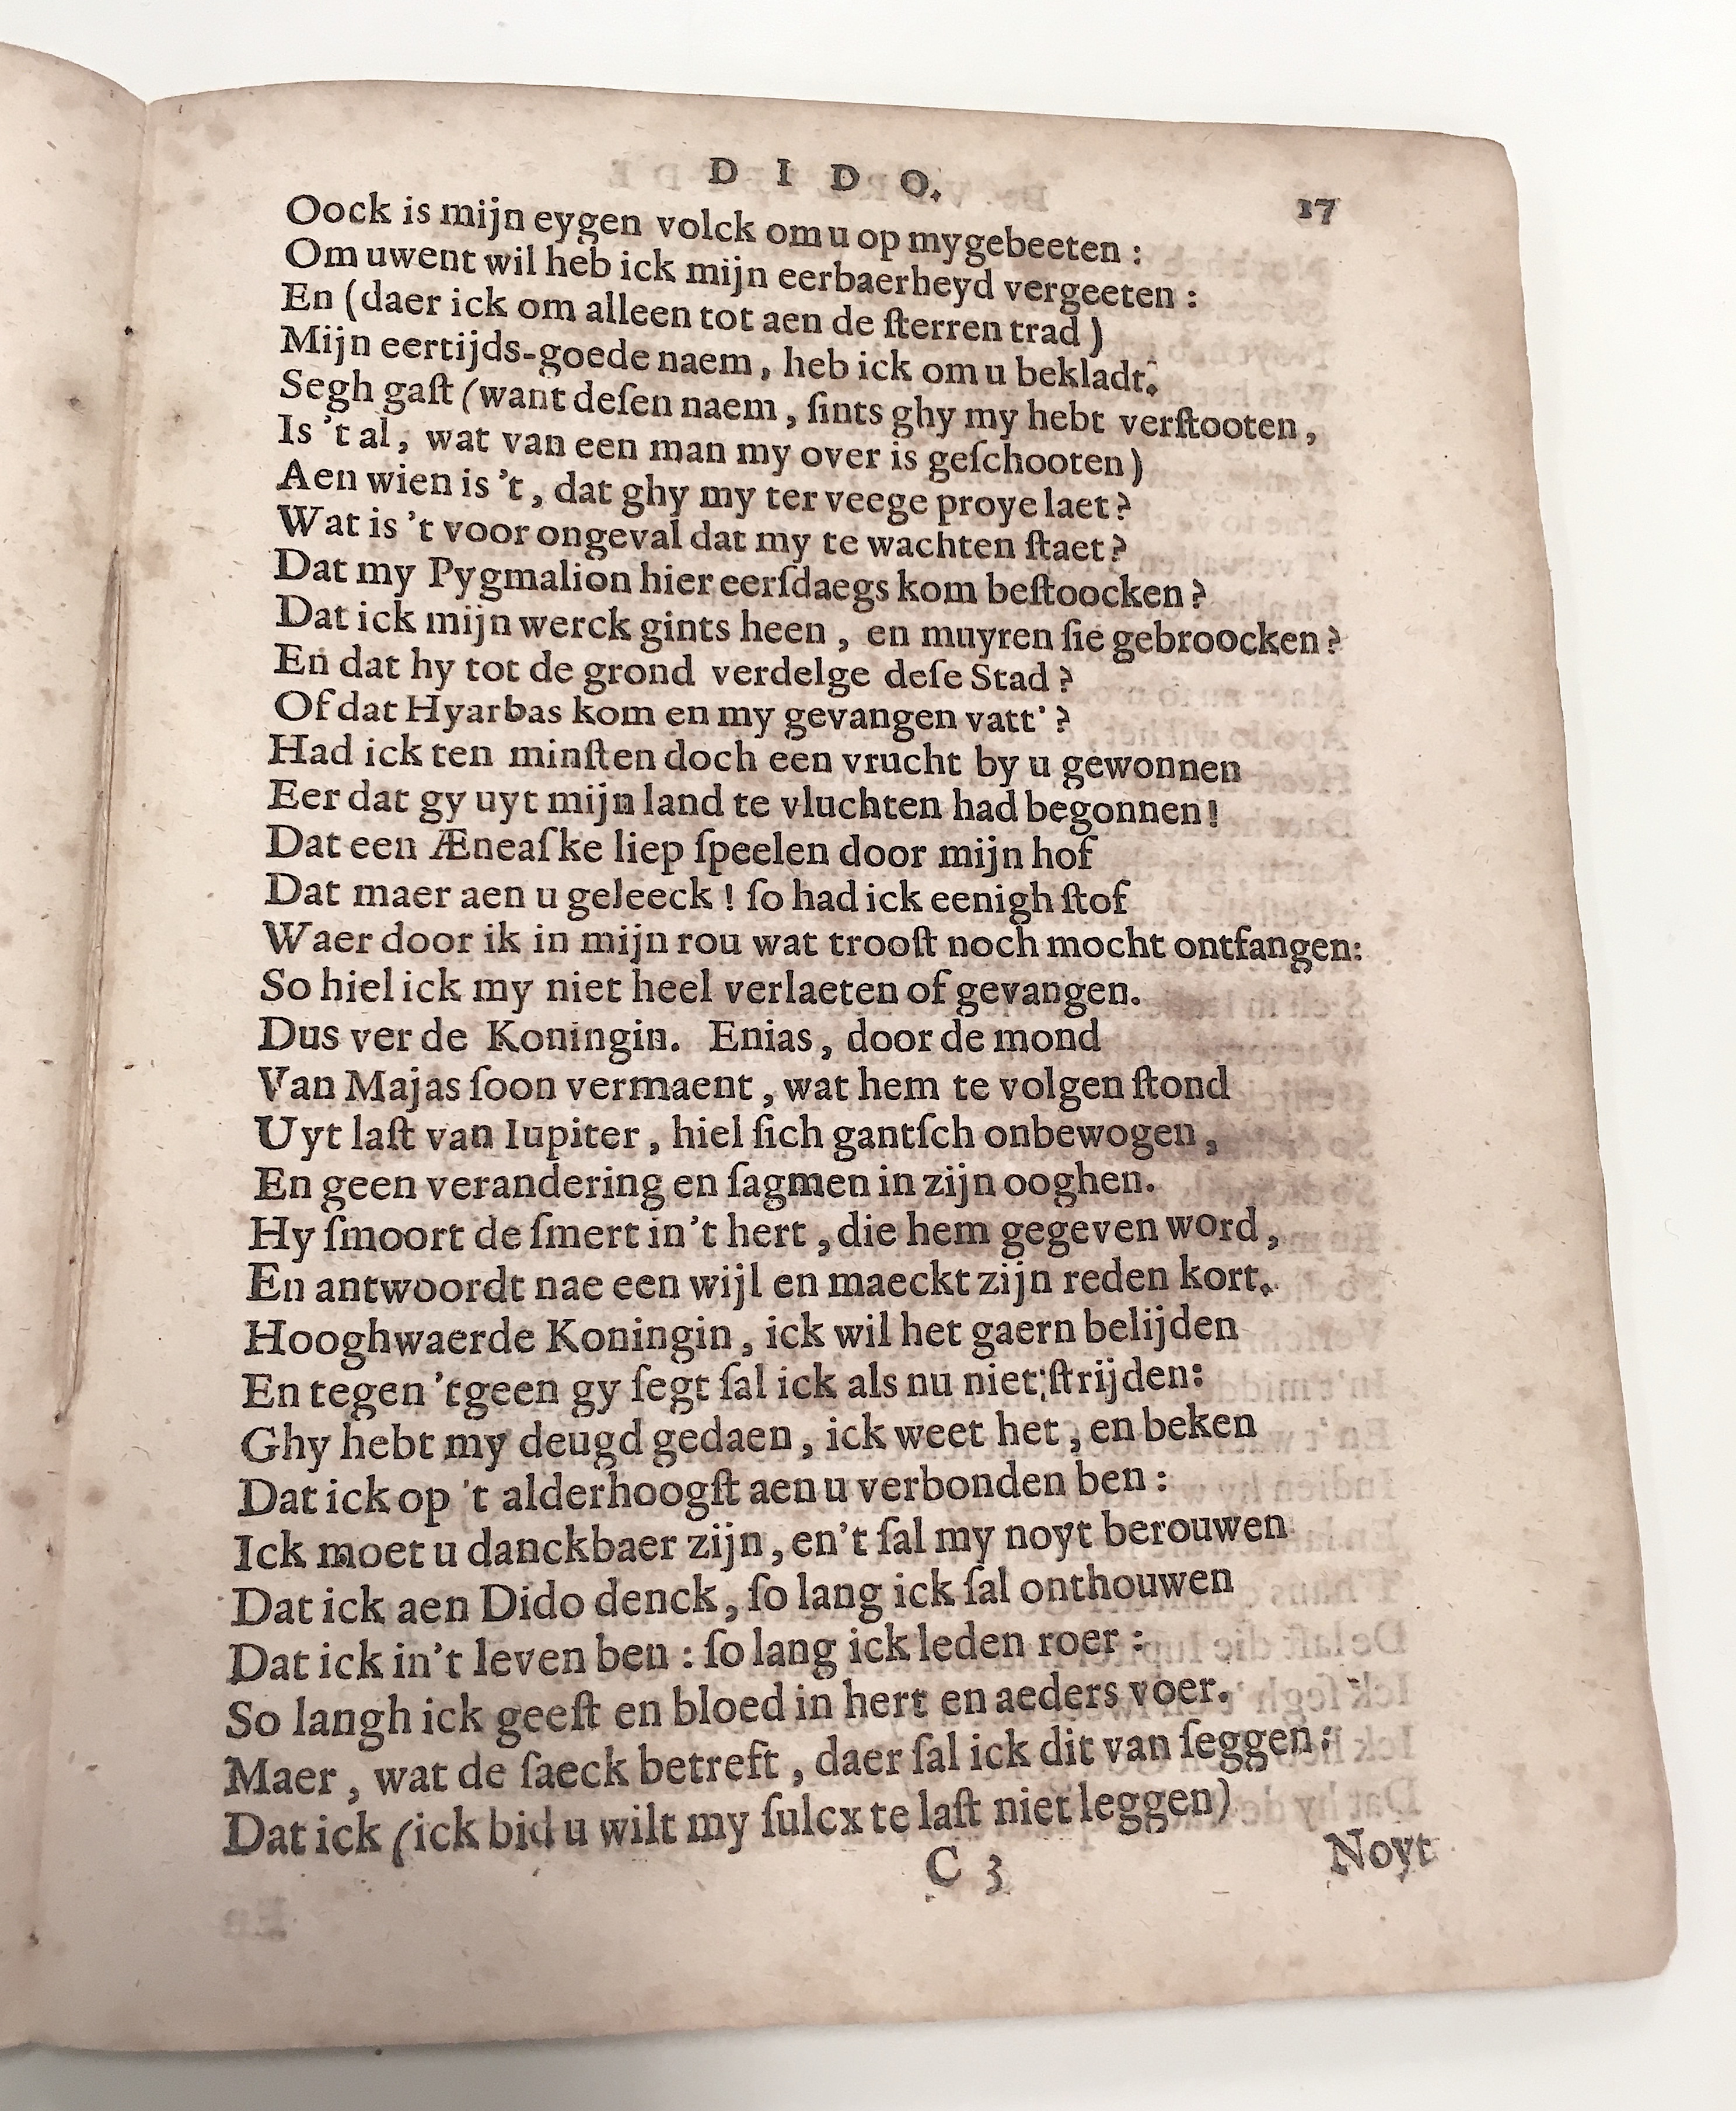 D I D O. 17
Oock is mijn eygen volck om u op my gebeeten :
Om uwent wil heb ick mijn eerbaerheyd vergeeten :
En (daer ick om alleen tot aen de ſterren trad )
Mijn eertijds-goede naem, heb ick om u bekladt.
Segh gaſt (want deſen naem, ſints ghy my hebt verſtooten,
Is 't al, wat van een man my over is geſchooten)
Aen wien is 't, dat ghy my ter veege proye laet?
Wat is 't voor ongeval dat my te wachten ſtaet?
Dat my Pygmalion hier eerſdaegs kom beſtoocken?
Dat ick mijn werck gints heen, en muyren ſie gebroocken?
En dat hy tot de grond verdelge deſe Stad?
Of dat Hyarbas kom en my gevangen vatt' ?
Had ick ten minſten doch een vrucht by u gewonnen
Eer dat gy uyt mijn land te vluchten had begonnen!
Dat een Æneaſke liep ſpeelen door mijn hof
Dat maer aen u geleeck ! ſo had ick eenigh ſtof
Waer door ik in mijn rou wat trooſt noch mocht ontfangen:
So hiel ick my niet heel verlaeten of gevangen.
Dus ver de Koningin. Enias, door de mond
Van Majas ſoon vermaent, wat hem te volgen ſtond
Uyt laſt van Iupiter, hiel ſich gantſch onbewogen,
En geen verandering en ſagmen in zijn ooghen.
Hy ſmoort de ſmert in't hert, die hem gegeven word,
En antwoordt nae een wijl en maeckt zijn reden kort.
Hooghwaerde Koningin, ick wil het gaern belijden
En tegen 'tgeen gy ſegt ſal ick als nu niet ſtrijden:
Ghy hebt my deugd gedaen, ick weet het, en beken
Dat ick op 't alderhoogſt aen u verbonden ben :
Ick moet u danckbaer zijn, en't ſal my noyt berouwen
Dat ick aen Dido denck, ſo lang ick ſal onthouwen
Dat ick in't leven ben : ſo lang ick leden roer :
So langh ick geeſt en bloed in hert en aeders voer.
Maer, wat de ſaeck betreft, daer ſal ick dit van ſeggen:
Dat ick (ick bid u wilt my ſulcx te laſt niet leggen)
C 3 Noyt